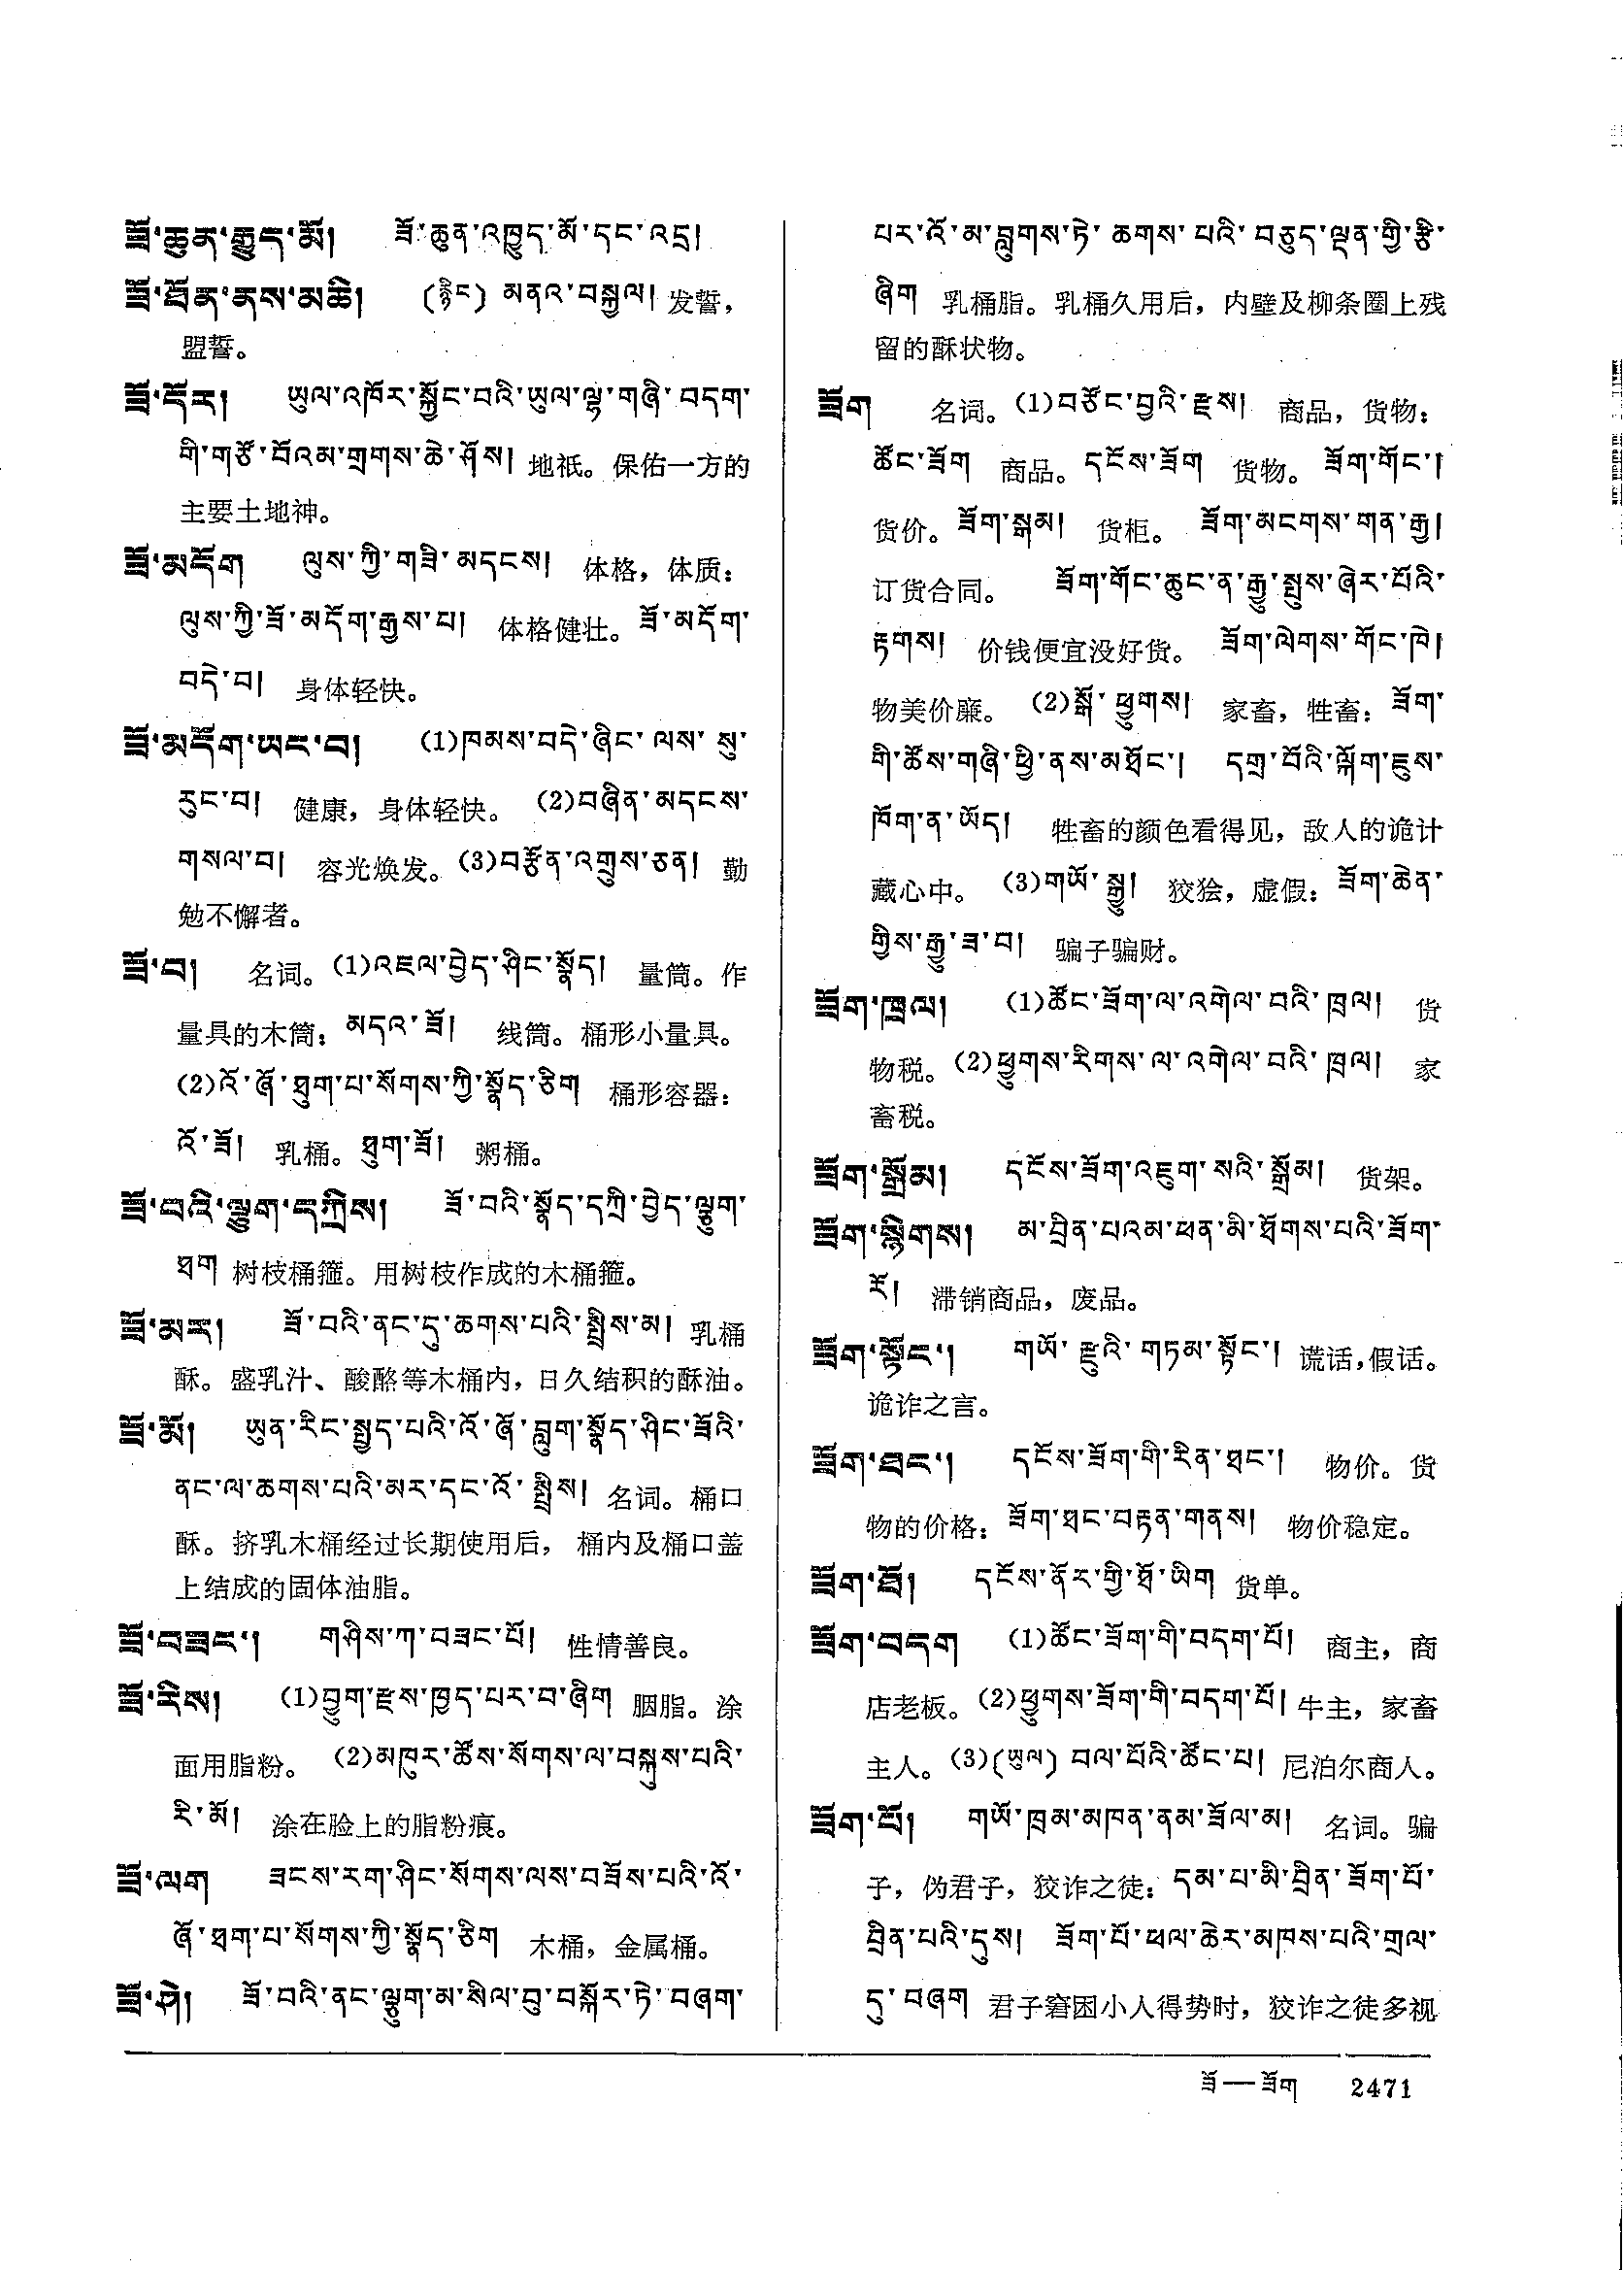 ཟོ་ཆུན་རྒྱུད་མོ། ཟོ་ཆུན་འཁྱུད་མོ་དང་འདྲ།
ཟོ་ཐོན་ནས་མཆི། (རྙིང) མནའ་བསྐྱལ། 发誓，
盟誓。
ཟོ་དོར། ཡུལ་འཁོར་སྐྱོང་བའི་ཡུལ་ལྷ་གཞི་བདག་
གི་གཙོ་བོའམ་གྲགས་ཆེ་ཤོས། 地祇。保佑一方的
主要土地神。
ཟོ་མདོག ལུས་ཀྱི་གཟི་མདངས། 体格，体质：
ལུས་ཀྱི་ཟོ་མདོག་རྒྱས་པ། 体格健壮。ཟོ་མདོག་
བདེ་བ། 身体轻快。
ཟོ་མདོག་ཡང་བ། (1)ཁམས་བདེ་ཞིང་ལས་སུ་
རུང་བ། 健康，身体轻快。(2)བཞིན་མདངས་
གསལ་བ། 容光焕发。(3)བརྩོན་འགྲུས་ཅན། 勤
勉不懈者。
ཟོ་བ། 名词。(1)འཇལ་བྱེད་ཤིང་སྣོད། 量筒。作
量具的木筒：མདའ་ཟོ། 线筒。桶形小量具。
(2)འོ་ཞོ་ཐུག་པ་སོགས་ཀྱི་སྣོད་ཅིག 桶形容器：
འོ་ཟོ། 乳桶。ཐུག་ཟོ། 粥桶。
ཟོ་བའི་ལྕུག་དཀྲིས། ཟོ་བའི་སྣོད་དཀྲི་བྱེད་ལྕུག་
ཐག 树枝桶箍。用树枝作成的木桶箍。
ཟོ་མར། ཟོ་བའི་ནང་དུ་ཆགས་པའི་སྤྲིས་མ། 乳桶
酥。盛乳汁、酸酪等木桶内，日久结积的酥油。
ཟོ་མོ། ཡུན་རིང་སྤྱད་པའི་འོ་ཞོ་བླུག་སྣོད་ཤིང་ཟོའི་
ནང་ལ་ཆགས་པའི་མར་དང་འོ་སྤྲིས། 名词。桶口
酥。挤乳木桶经过长期使用后，桶内及桶口盖
上结成的固体油脂。
ཟོ་བཟང་། གཤིས་ཀ་བཟང་པོ། 性情善良。
ཟོ་རིས། (1)བྱུག་རྫས་ཁྱད་པར་བ་ཞིག 胭脂。涂
面用脂粉。(2)མཁུར་ཚོས་སོགས་ལ་བསྐུས་པའི་
རི་མོ། 涂在脸上的脂粉痕。
ཟོ་ལག ཟངས་རག་ཤིང་སོགས་ལས་བཟོས་པའི་འོ་
ཞོ་ཐག་པ་སོགས་ཀྱི་སྣོད་ཅིག 木桶，金属桶。
ཟོ་ཤེ། ཟོ་བའི་ནང་ལྕུག་མ་སིལ་བུ་བསྐོར་ཏེ་བཞག་
པར་འོ་མ་བླུགས་ཏེ་ཆགས་པའི་བཅུད་ལྡན་གྱི་རྩི་
ཞིག 乳桶脂。乳桶久用后，内壁及柳条圈上残
留的酥状物。
ཟོག 名词。(1)བཙོང་བྱའི་རྫས། 商品，货物：
ཚོང་ཟོག 商品。དངོས་ཟོག 货物。ཟོག་གོང་།
货价。ཟོག་སྒམ། 货柜。ཟོག་མངགས་གན་རྒྱ།
订货合同。ཟོག་གོང་ཆུང་ན་རྒྱུ་སྤུས་ཞེར་པོའི་
རྟགས། 价钱便宜没好货。ཟོག་ལེགས་གོང་ཁེ།
物美价廉。(2)སྒོ་ཕྱུགས། 家畜，牲畜：ཟོག་
གི་ཚོས་གཞི་ཕྱི་ནས་མཐོང་། དགྲ་བོའི་ལྐོག་ཇུས་
ཁོག་ན་ཡོད། 牲畜的颜色看得见，敌人的诡计
藏心中。(3)གཡོ་སྒྱུ། 狡狯，虚假：ཟོག་ཆེན་
གྱིས་རྒྱུ་ཟ་བ། 骗子骗财。
ཟོག་ཁྲལ། (1)ཚོང་ཟོག་ལ་འགེལ་བའི་ཁྲལ། 货
物税。(2)ཕྱུགས་རིགས་ལ་འགེལ་བའི་ཁྲལ། 家
畜税。
ཟོག་སྒྲོམ། དངོས་ཟོག་འཇུག་སའི་སྒྲོམ། 货架。
ཟོག་སྙིགས། མ་བྲིན་པའམ་ཕན་མི་ཐོགས་པའི་ཟོག་
རོ། 滞销商品，废品。
ཟོག་སྟོང་། གཡོ་རྫུའི་གཏམ་སྟོང་། 谎话，假话。
诡诈之言。
ཟོག་ཐང་། དངོས་ཟོག་གི་རིན་ཐང་། 物价。货
物的价格：ཟོག་ཐང་བརྟན་གནས། 物价稳定。
ཟོག་ཐོ། དངོས་ནོར་གྱི་ཐོ་ཡིག 货单。
ཟོག་བདག (1)ཚོང་ཟོག་གི་བདག་པོ། 商主，商
店老板。(2)ཕྱུགས་ཟོག་གི་བདག་པོ། 牛主，家畜
主人。(3)(ཡུལ) བལ་པོའི་ཚོང་པ། 尼泊尔商人。
ཟོག་པོ། གཡོ་ཁྲམ་མཁན་ནམ་ཟོལ་མ། 名词。骗
子，伪君子，狡诈之徒：དམ་པ་མི་བྲིན་ཟོག་པོ་
བྲིན་པའི་དུས། ཟོག་པོ་ཕལ་ཆེར་མཁས་པའི་གྲལ་
དུ་བཞག 君子窘困小人得势时，狡诈之徒多视
ཟོ—ཟོག 2471